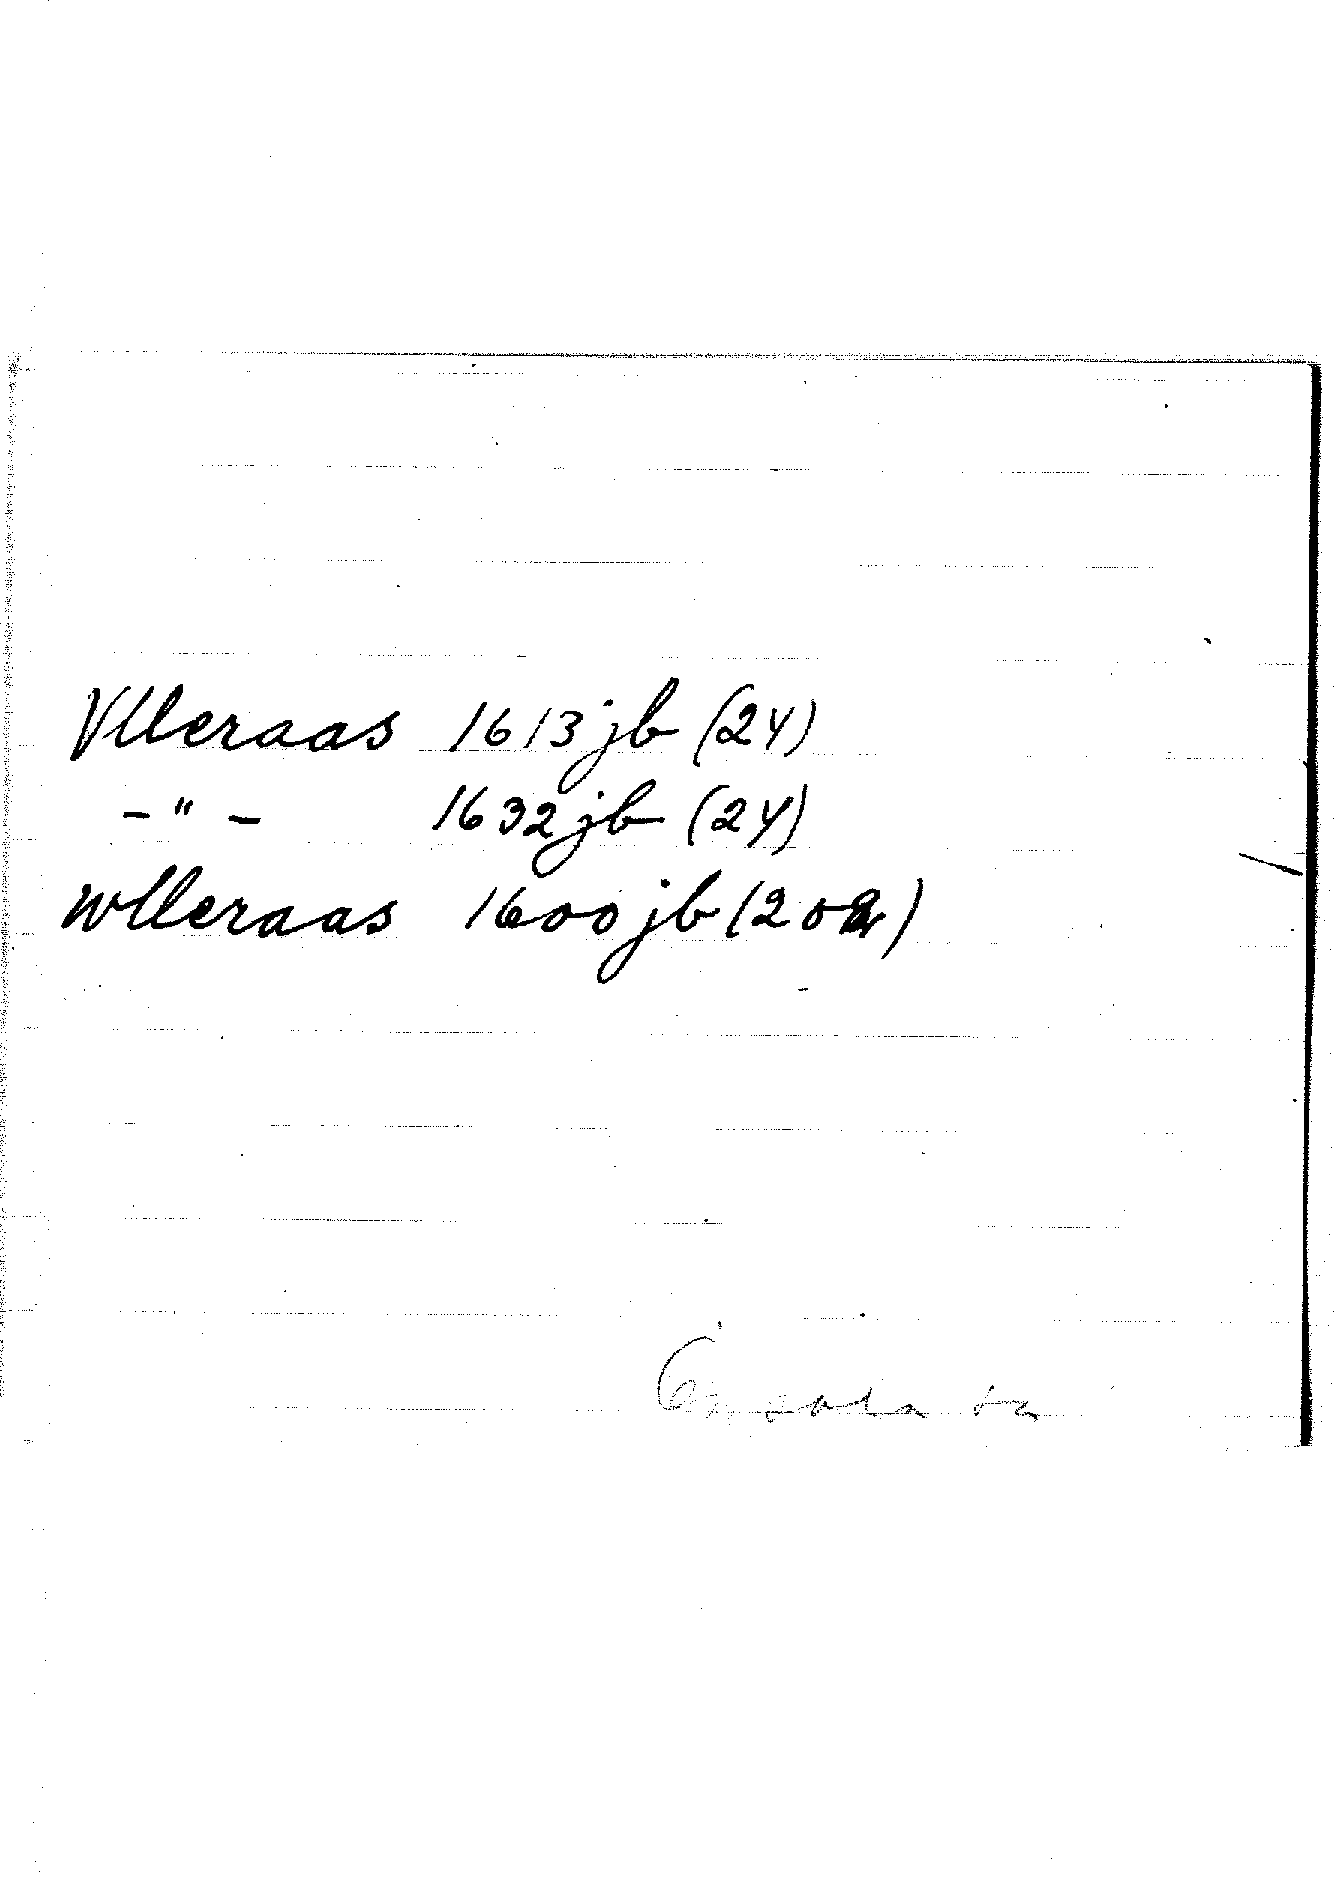 Vlleraas 1613 jb (24)
- " - 1632 jb (24)
wlleraas 1600 jb (20